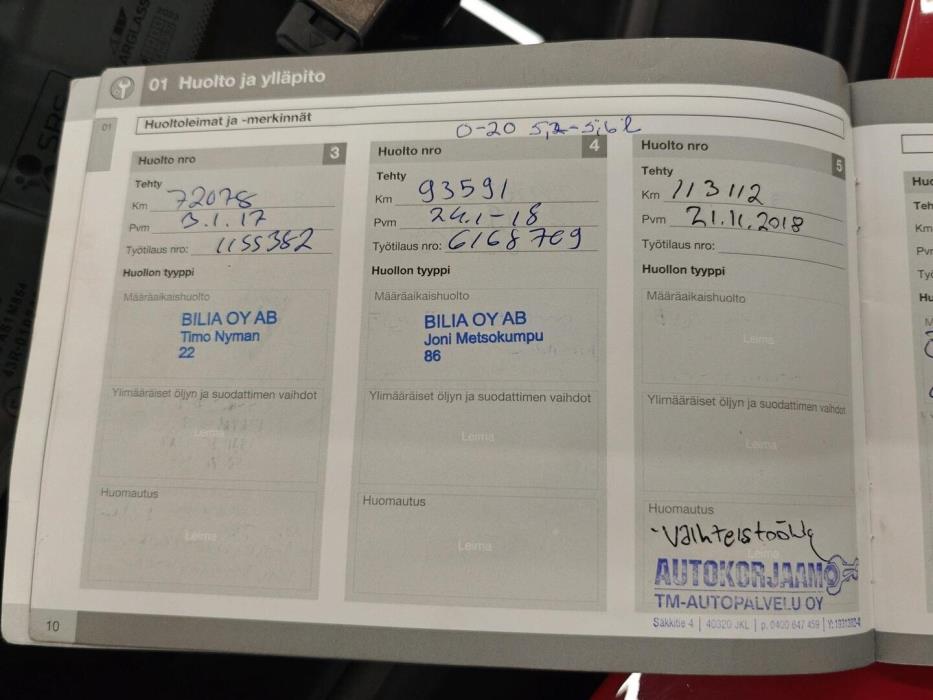 01 Huolto ja ylläpito
01
Huoltoleimat ja -merkinnät
0-20 5,2-5,6 l
Huolto nro 3
Tehty
Km 72078
Pvm 3.1.17
Työtilaus nro: 1155382
Huollon tyyppi
Määräaikaishuolto
BILIA OY AB
Timo Nyman
22
Ylimääräiset öljyn ja suodattimen vaihdot
Leima
Huomautus
Leima
Huolto nro 4
Tehty
Km 93591
Pvm 24.1-18
Työtilaus nro: 6168769
Huollon tyyppi
Määräaikaishuolto
BILIA OY AB
Joni Metsokumpu
86
Ylimääräiset öljyn ja suodattimen vaihdot
Leima
Huomautus
Leima
Huolto nro 5
Tehty
Km 113112
Pvm 21.11.2018
Työtilaus nro:
Huollon tyyppi
Määräaikaishuolto
Leima
Ylimääräiset öljyn ja suodattimen vaihdot
Leima
Huomautus
-Vaihteistoöljy
Leima
AUTOKORJAAMO
TM-AUTOPALVELU OY
Säkkitie 4 | 40320 JKL | p. 0400 647 459 |
10